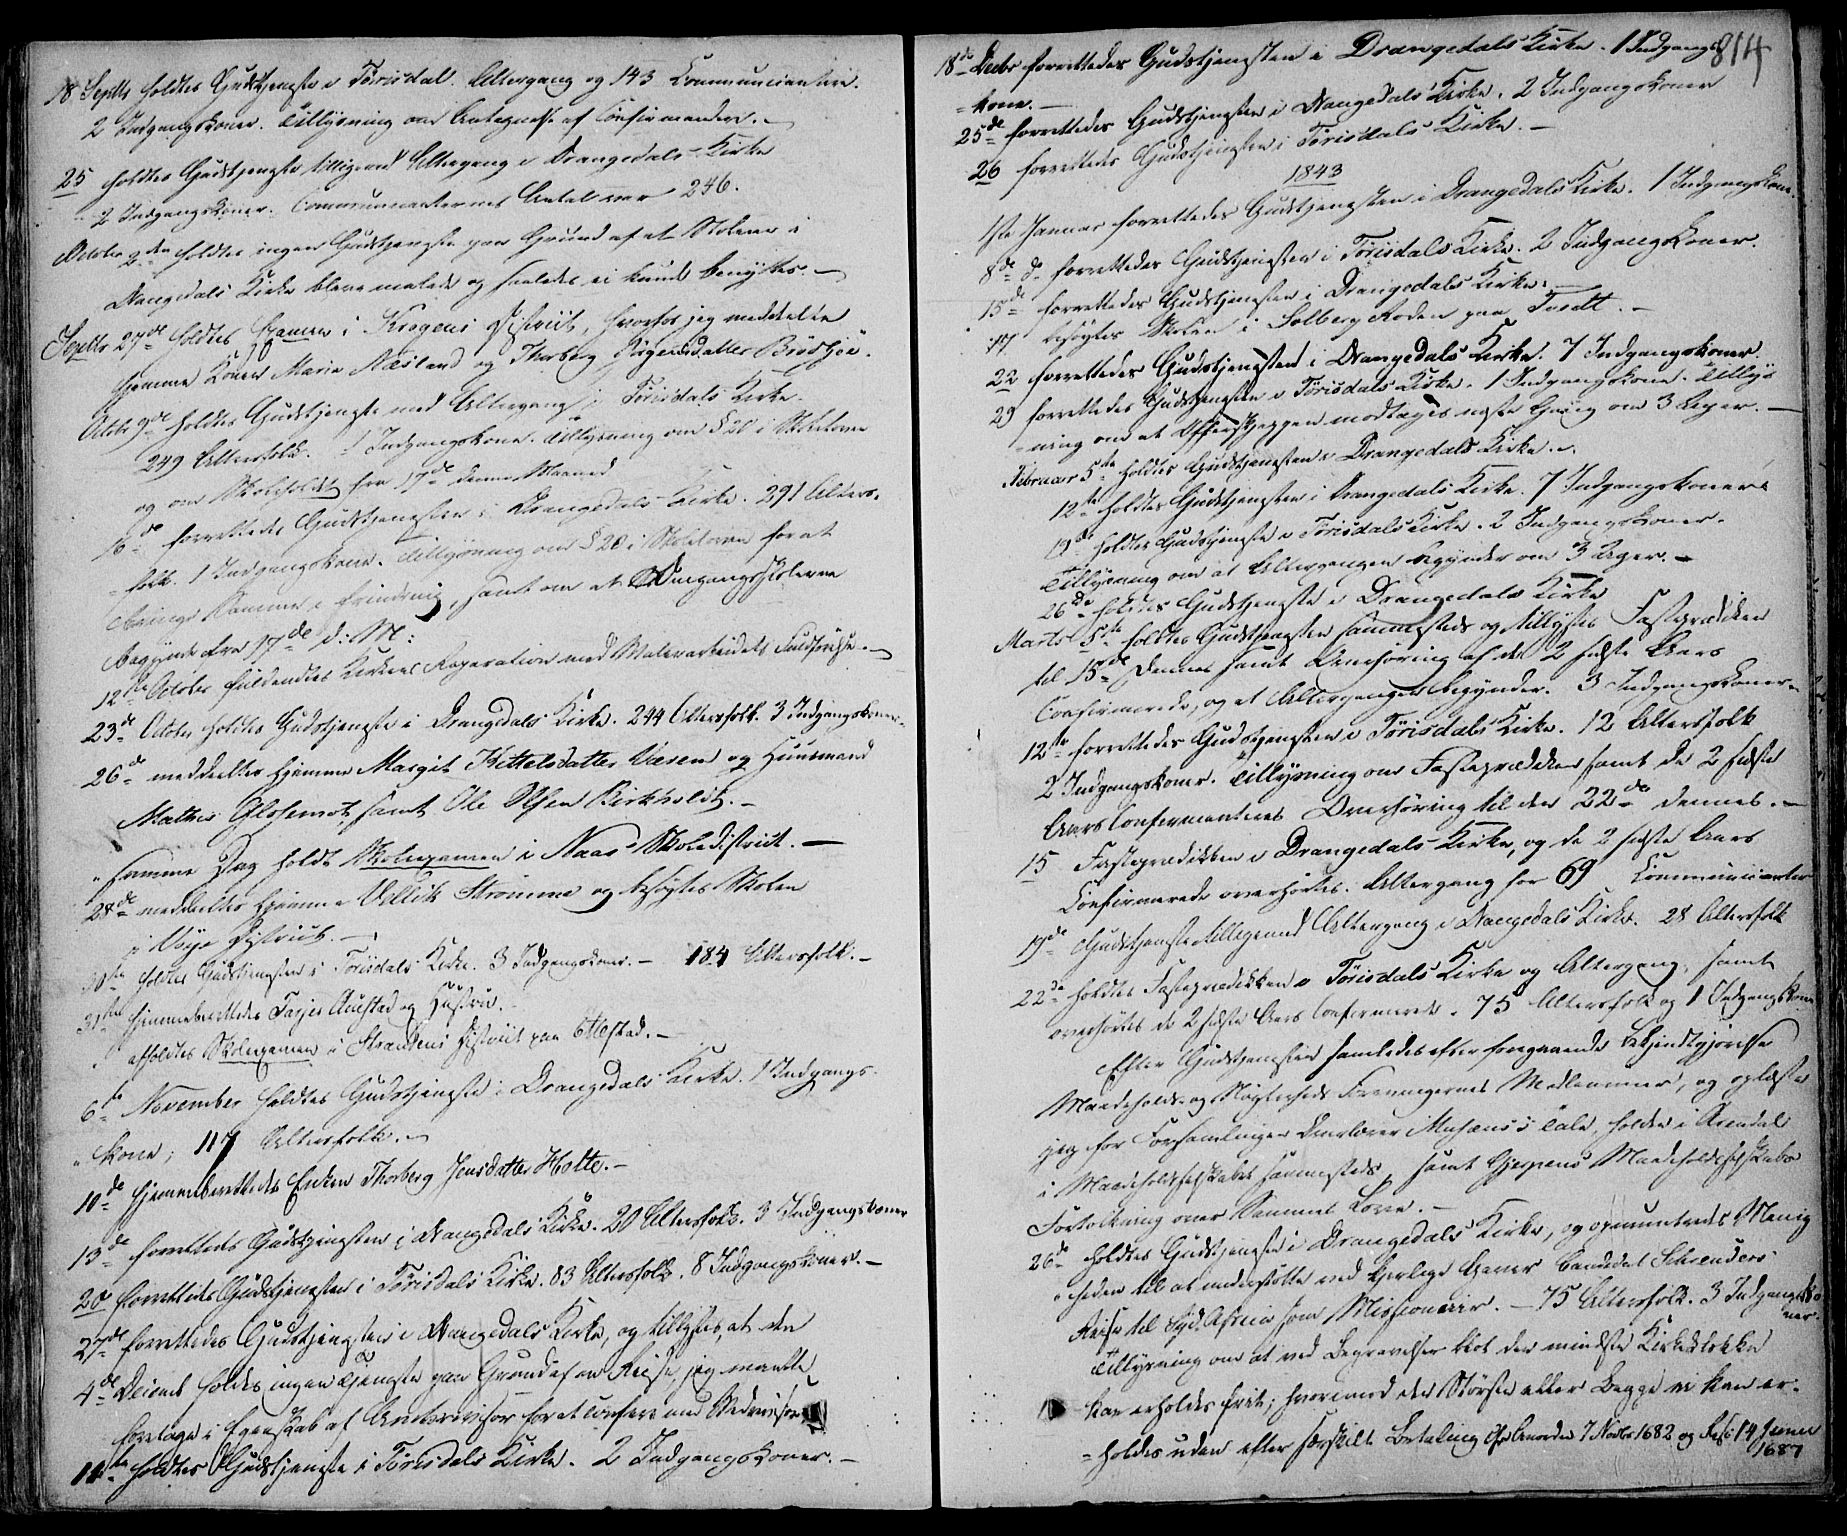 18 Septbr holdtes Gudstjeneste i Tørisdal. Altergang og 143 Communicantere.
2 Indgangskoner. Tillysning om Antagelse af Confirmander.
25 holdtes Gudstjeneste tilligemed Altergang i Drangedals Kirke
2 Indgangskoner. Communicanternes Antal var 246.
October 2den holdtes ingen Gudstjeneste paa Grund af at Stolene i
Drangedals Kirke bleve malede og saaledes ei kunde benyttes.
Septbr 27de holdtes Examen i Krogens District, hvorfor jeg meddelte
hjemme Konen Marie Næsland og Thorberg Jørgensdatter Brødsjøe.
Octbr 9de holdtes Gudstjeneste med Altergang i Tørisdals Kirke.
249 Altersfolk. 1 Indgangskone. Tillysning om § 20 i Skoleloven
og om Skolehold fra 17de denne Maaned
16de forrettedes Gudstjenesten i Drangedals Kirke. 291 Alters-
folk. 1 Indgangskone. Tillysning om § 20 i Skoleloven for at
bringe Samme i Erindring, samt om at Omgangsskolerne
begynde fra 17de d: M:
12te October fuldendtes Kirkens Reparation med Malerarbeidets Fuldførelse.
23de Octbr holdtes Gudstjeneste i Drangedals Kirke. 244 Altersfolk. 3 Indgangskoner.
26de meddeeltes hjemme Margit Kittelsdatter Væsen og Huusmand
Mathis samt Ole Olsen Kirkholdt.
samme Dag holdt Skoleexamen i Naas Skoledistrict.
28de meddeeltes hjemme Strømme og besøgtes Skolen
i Voje District.
30te holdtes Gudstjenesten i Tørisdals Kirke. 3 Indgangskoner. 184 Altersfolk.
31te hjemmeberettedes Tarjei Austad og Hustru.
afholdtes Skoleexamen i Strandens District paa Ettestad.
6te November holdtes Gudstjeneste i Drangedals Kirke. 1 Indgangs-
kone; 117 Altersfolk.
10de hjemmeberettedes Enken Thorberg Jensdatter Holte.
13de forrettedes Gudstjenesten i Drangedals Kirke. 20 Altersfolk. 3 Indgangskoner
20 forrettedes Gudstjenesten i Tørisdals Kirke. 83 Altersfolk. 8 Indgangskoner.
27de forrettedes Gudstjenesten i Drangedals Kirke, og tillystes, at den
4de Decembr holdes ingen Tjeneste paa Grund af en Reise, jeg maatte
foretage i Egenskab af for at conferere med Medrevisor
11te holdtes Gudstjeneste i Tørisdals Kirke. 2 Indgangskoner.
814
18de Decbr forrettedes Gudstjenesten i Drangedals Kirke. 1 Indgangs-
kone.
25de forrettedes Gudstjenesten i Drangedals Kirke. 2 Indgangskoner
26 forrettedes Gudstjenesten i Tørisdals Kirke.
1843
1ste Januar forrettedes Gudstjenesten i Drangedals Kirke. 1 Indgangskone.
8de d. forrettedes Gudstjenesten i Tørisdals Kirke. 2 Indgangskoner.
15de forrettedes Gudstjenesten i Drangedals Kirke.
17 besøgtes Skolen i Solberg Roden paa Tvedt.
22 forrettedes Gudstjenesten i Drangedals Kirke. 7 Indgangskoner.
29 forrettedes Gudstjenesten i Tørisdals Kirke. 1 Indgangskone. Tillys-
ning om at Offerskjeppen modtages næste Gang om 3 Uger.
Februar 5te holdtes Gudstjenesten i Drangedals Kirke.
12te holdtes Gudstjenesten i Drangedals Kirke. 7 Indgangskoner.
19de holdtes Gudstjeneste i Tørisdals Kirke. 2 Indgangskoner.
Tillysning om at Altergangen begynder om 3 Uger.
26de holdtes Gudstjeneste i Drangedals Kirke
Marts 5te holdtes Gudstjenesten sammesteds og tillystes Fasteprædiken
til 15de Dennes samt Overhøring af de 2 sidste Aars
Confirmerede, og at Altergangen begynder. 3 Indgangskoner.
12te forrettedes Gudstjenesten i Tørisdals Kirke. 12 Altersfolk
2 Indgangskoner. Tillysning om Fasteprædiken samt de 2 sidste
Aars Confirmanteres Overhøring til den 22de dennes.
15 Fasteprædikken i Drangedals Kirke, og de 2 sidste Aars
Confirmerede overhørtes. Altergang for 69 Communicanter
19de Gudstjeneste tilligemed Altergang i Drangedals Kirke. 28 Altersfolk
22de holdtes Fasteprædikken i Tørisdals Kirke og Altergang, samt
overhørtes de 2 sidste Aars Confirmerede. 75 Altersfolk og 1 Indgangskone
Efter Gudstjenesten samledes efter foregaaende Bekjendtgjørelse
Maadeholds- og Nøgterheds Foreningernes Medlemmer, og oplæste
jeg for Forsamlingen Tale, holden i Arendal
i Maadeholdsselskabet sammesteds, samt Gjerpens Maadeholdsselskabs
Fortolkning over Sammes Love.
26de holdtes Gudstjenesten i Drangedals Kirke, og opmuntredes Menig-
heden til at understøtte med kjerlige Gaver Candidat Schreuders
Reise til Syd Africa som Missionair. 75 Altersfolk. 3 Indgangsko-
ner.
Tillysning om at ved Begravelser blot den mindste Kirkeklokke
kan erholdes frit; hvorimod den Største eller Begge ei kan er-
holdes uden efter særskilt Betaling cfr Anordn 7 Novbr 1682 og Resc 14 Juni
1687